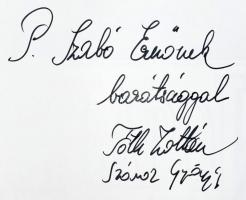 P. Szabó Ernőnek
barátsággal
Tóth Zoltán
Számor György